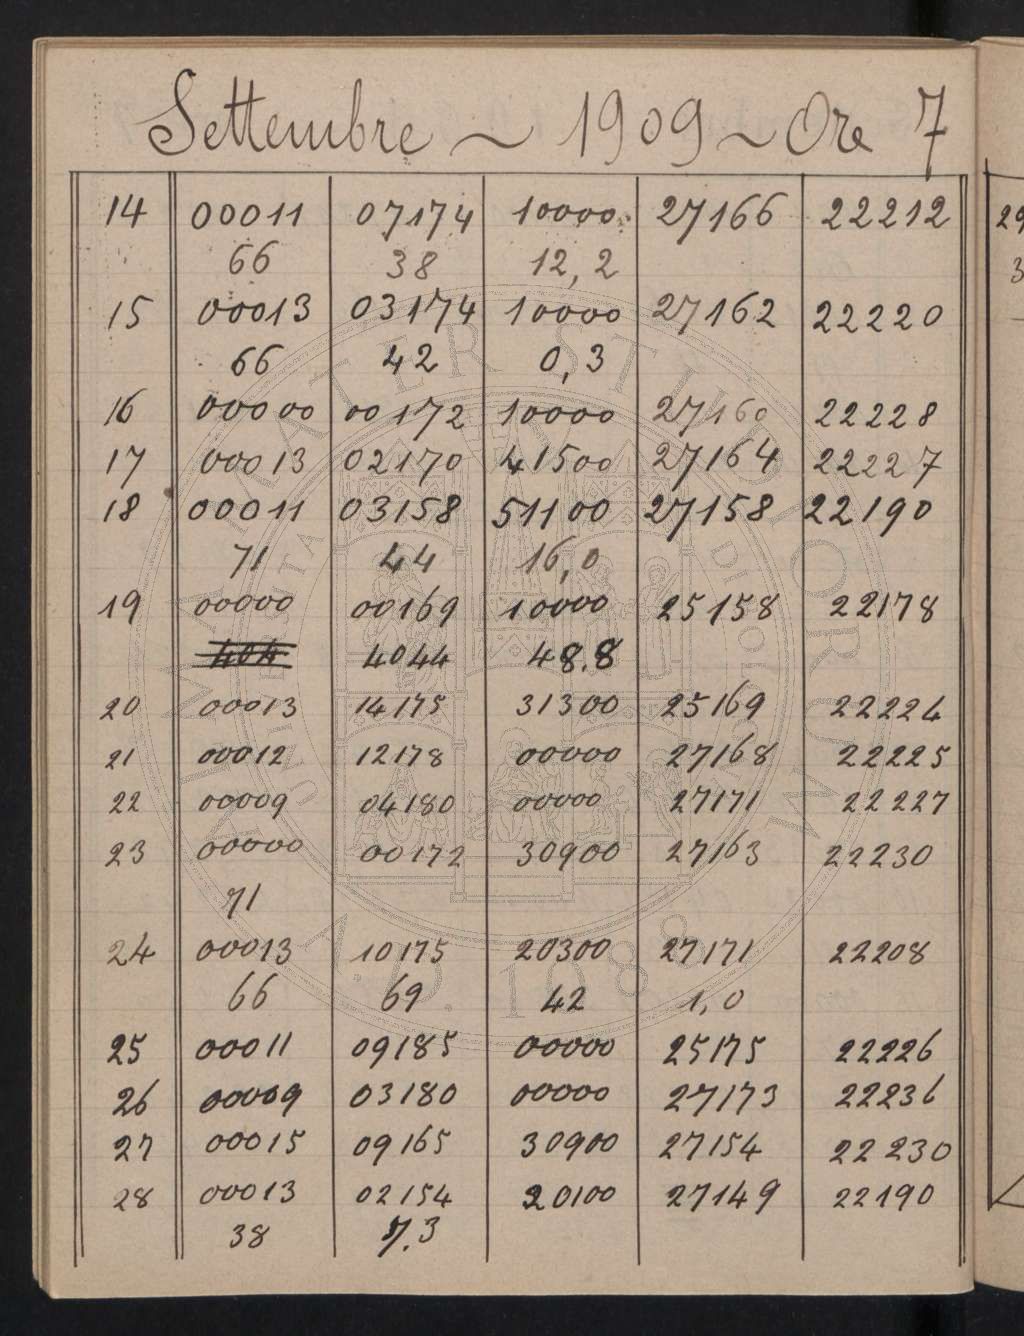 Settembre ~ 1909 ~ Ore 7
14 00011 07174 10000 27166 22212
66 38 12,2
15 00013 03174 10000 27162 22220
66 42 0,3
16 00000 00172 10000 27160 22228
17 00013 02170 41500 27164 22227
18 00011 03158 51100 27158 22190
71 44 16,0
19 00000 00169 10000 25158 22178
404 4044 48.8
20 00013 14175 31300 25169 22224
21 00012 12178 00000 27168 22225
22 00009 04180 00000 27171 22227
23 00000 00172 30900 27163 22230
71
24 00013 10175 20300 27171 22208
66 69 42 1,0
25 00011 09185 00000 25175 22226
26 00009 03180 00000 27173 22236
27 00015 09165 30900 27154 22230
28 00013 02154 20100 27149 22190
38 7.3
29
3
ALMA MATER STUDIORUM
A.D. 1088